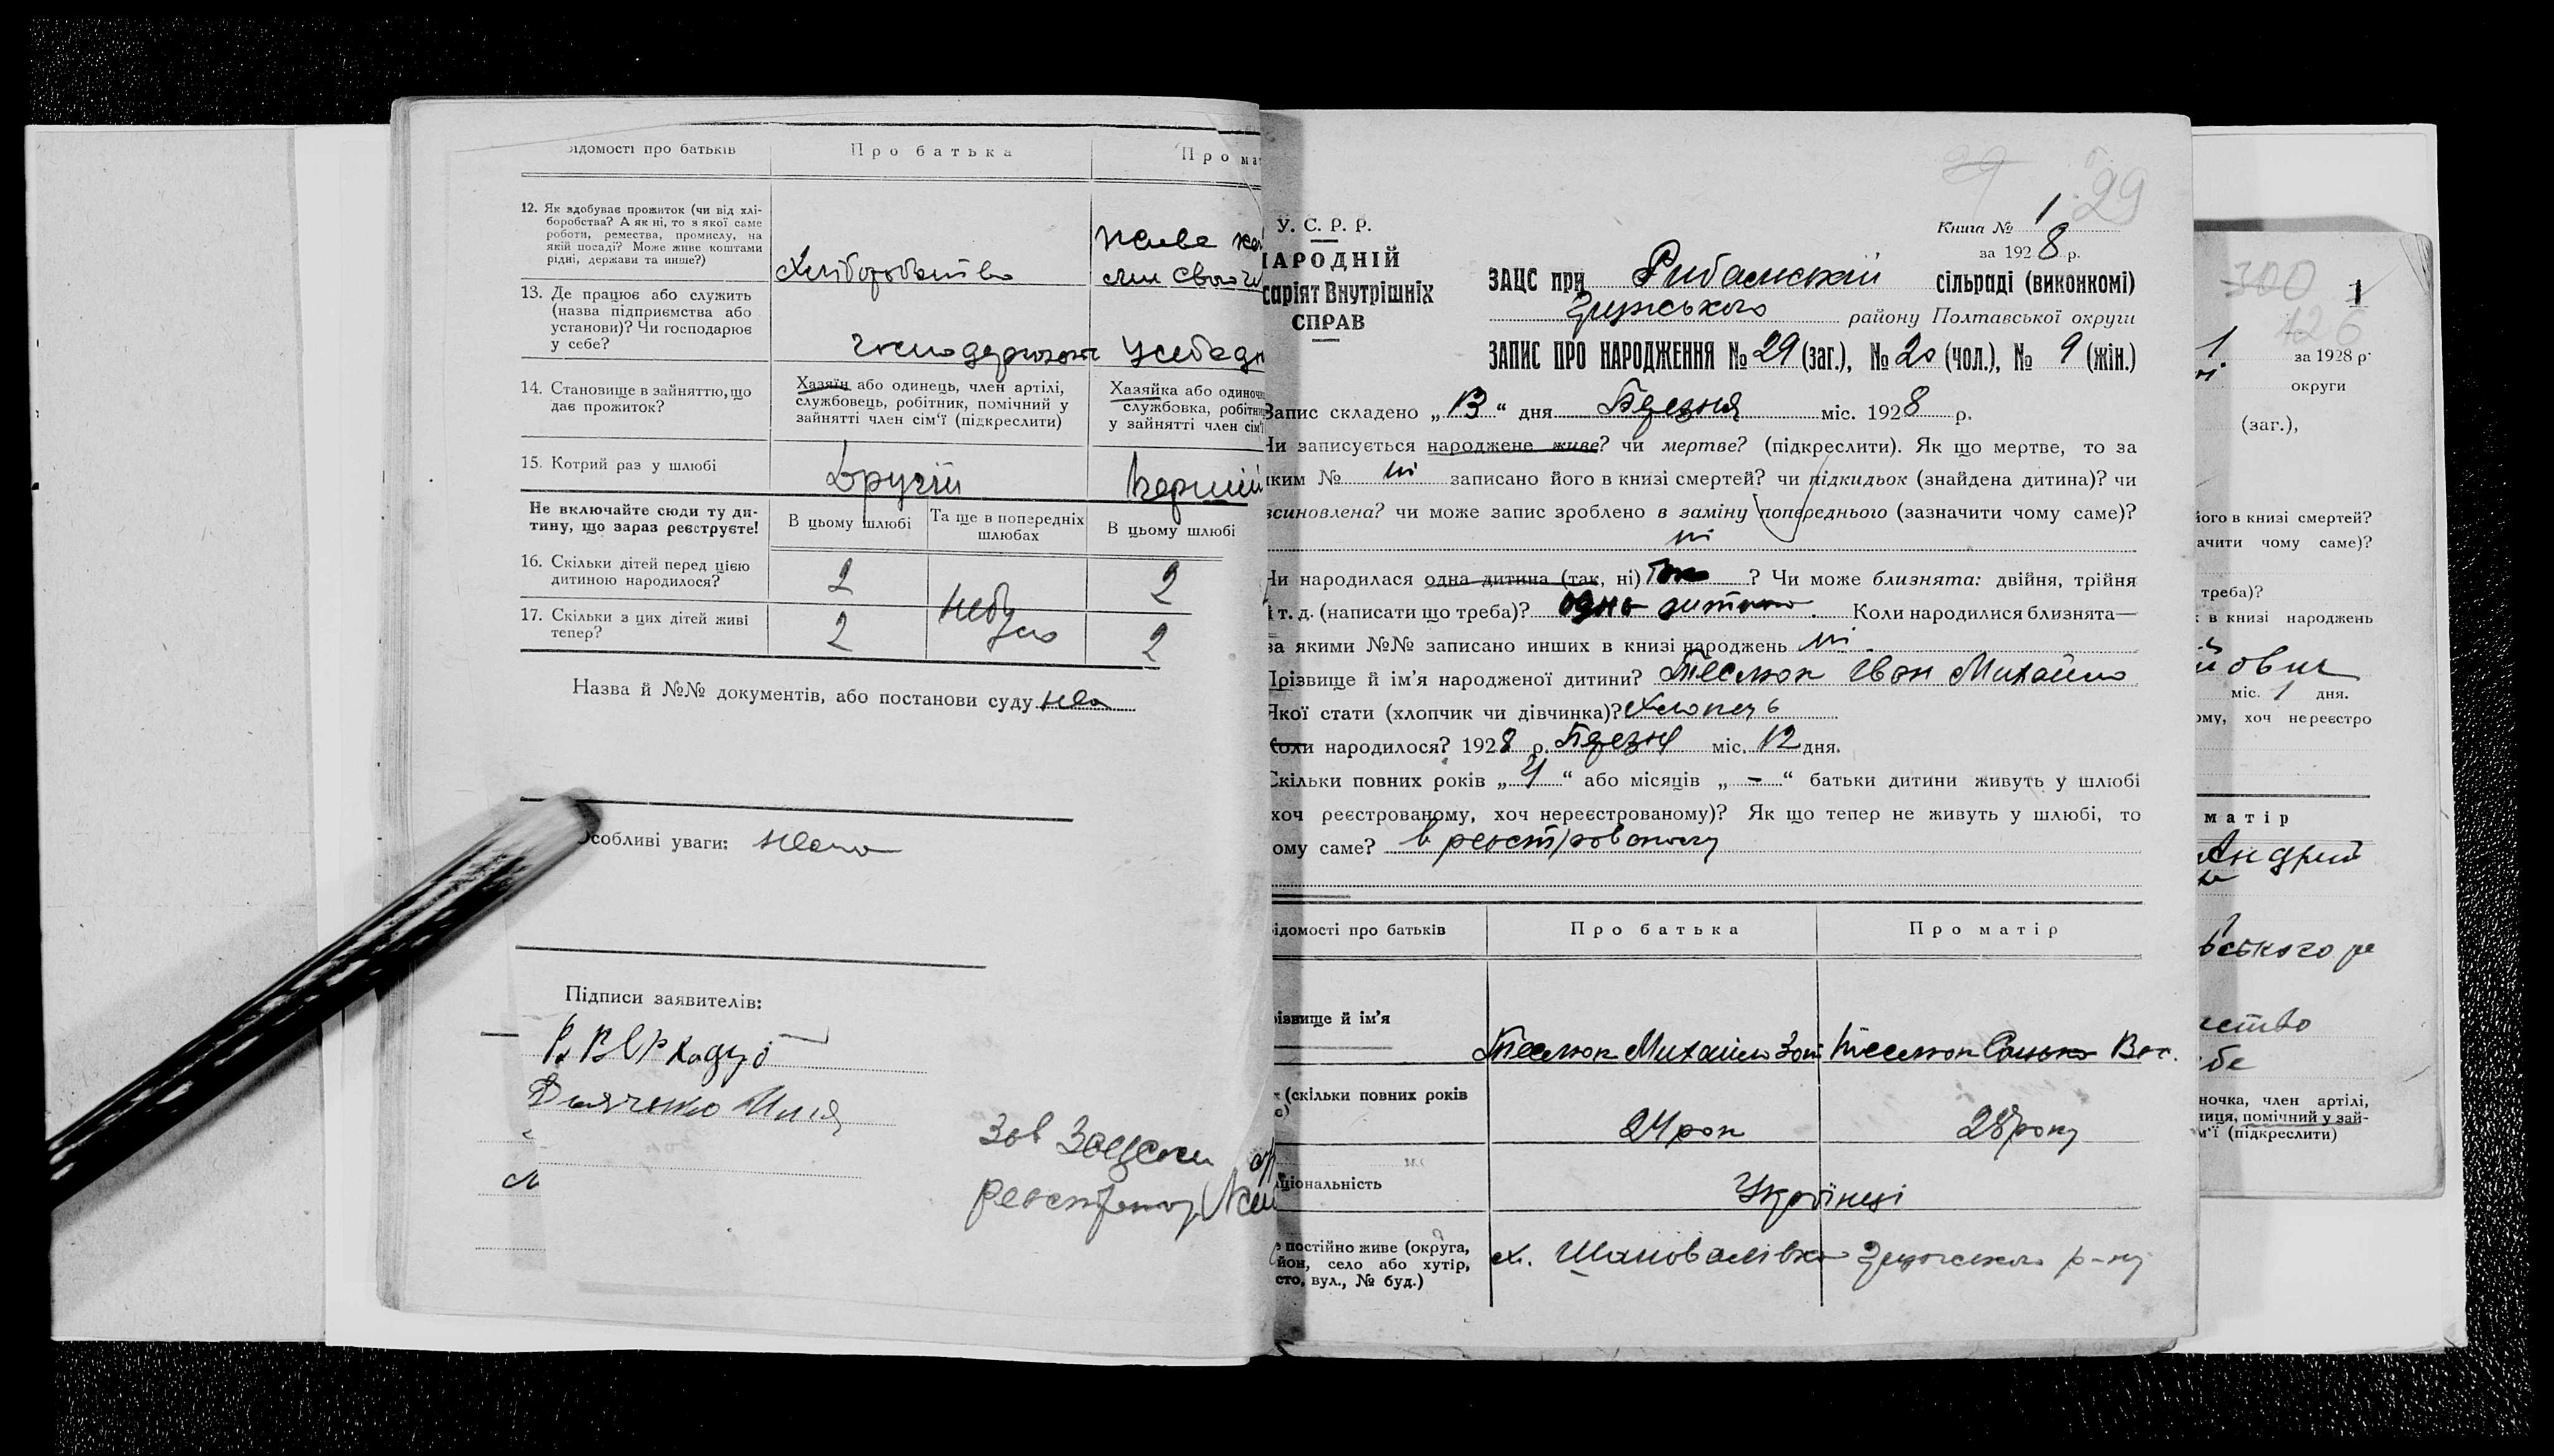 ідомості про батьків
Про батька
Про мат
12. Як здобуває прожиток (чи від хлі-
боробства? А як ні, то з якої саме
роботи, ремества, промислу, на
якій посаді? Може живе коштами
рідні, держави та инше?)
Хліборобство
живе
13. Де працює або служить
(назва підприємства або
установи)? Чи господарює
у себе?
14. Становище в зайняттю, що
дає прожиток?
Хазяїн або одинець, член артілі,
службовець, робітник, помічний у
зайнятті член сім'ї (підкреслити)
Хазяйка або одиноч
службовка, робітни
у зайнятті член сім'ї
15. Котрий раз у шлюбі
Другий
Перший
Не включайте сюди ту ди-
тину, що зараз реєструєте!
В цьому шлюбі
Та ще в попередніх
шлюбах
В цьому шлюбі
16. Скільки дітей перед цією
дитиною народилося?
2
2
17. Скільки з цих дітей живі
тепер?
2
небуло
2
Назва й №№ документів, або постанови суду
Особливі уваги:
Підписи заявителів:
Дьяченко
Зав Загсом
У. С. Р. Р.
НАРОДНІЙ
саріят Внутрішніх
СПРАВ
29
Книга № 1
за 1928 р.
ЗАЦС при сільраді (виконкомі)
району Полтавської округи
ЗАПИС ПРО НАРОДЖЕННЯ № 29 (заг.), № 20 (чол.), № 9 (жін.)
Запис складено „13“ дня Березня міс. 1928 р.
Чи записується народжене живе? чи мертве? (підкреслити). Як що мертве, то за
яким № ні записано його в книзі смертей? чи підкидьок (знайдена дитина)? чи
всиновлена? чи може запис зроблено в заміну попереднього (зазначити чому саме)?
ні
Чи народилася одна дитина (так, ні) так ? Чи може близнята: двійня, трійня
і т. д. (написати що треба)? одна дитина Коли народилися близнята—
за якими №№ записано инших в книзі народжень ні
Прізвище й ім'я народженої дитини? Теслюк Іван Михайло
Якої стати (хлопчик чи дівчинка)? Хлопець
Коли народилося? 1928 р. Березня міс. 12 дня.
Скільки повних років „4“ або місяців „-“ батьки дитини живуть у шлюбі
хоч реєстрованому, хоч нереєстрованому)? Як що тепер не живуть у шлюбі, то
ому саме?
ідомості про батьків
Про батька
Про матір
ізвище й ім'я
Теслюк Михайло
Теслюк Вас.
(скільки повних років
24 рок
28 року
ціональність
Українці
постійно живе (округа,
йон, село або хутір,
сто, вул., № буд.)
х. Шаповалівка р-ну
300
126
1
1
за 1928 р.
округи
(заг.),
його в книзі смертей?
ачити чому саме)?
треба)?
в книзі народжень
міс. 1 дня.
ому, хоч нереєстро
матір
Андрій
ського
ство
бе
ночка, член артілі,
ниця, помічний у зай-
м'ї (підкреслити)